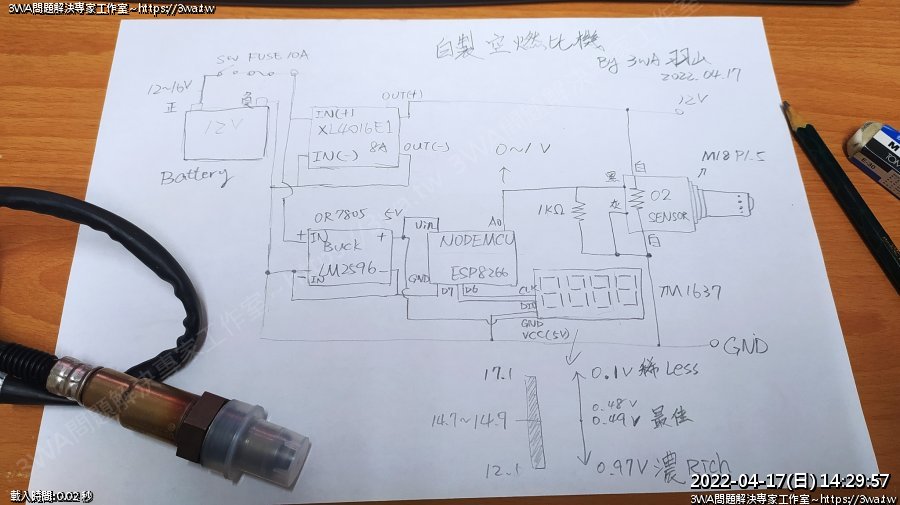 3WA問題解決專家工作室~https://3wa.tw
自製空燃比機
By 3WA 羽山
2022.04.17
SW FUSE 10A
12~16V
正
負
12V
Battery
OUT(+)
IN(+)
XL4016E1
8A
IN(-)
OUT(-)
12V
0~1V
M18 P1.5
白
黑
灰
O2
SENSOR
白
1KΩ
OR 7805
5V
+ IN +
Buck
LM2596 -
- IN
Vin
A0
NODEMCU
ESP8266
GND
D7
D6
CLK
DIO
GND
VCC(5V)
TM1637
GND
17.1
14.7~14.9
12.1
0.1V 稀 Less
0.48V
0.49V 最佳
0.97V 濃 Rich
3WA問題解決專家工作室~https://3wa.tw
載入時間: 0.02 秒
2022-04-17(日) 14:29:57
3WA問題解決專家工作室~https://3wa.tw